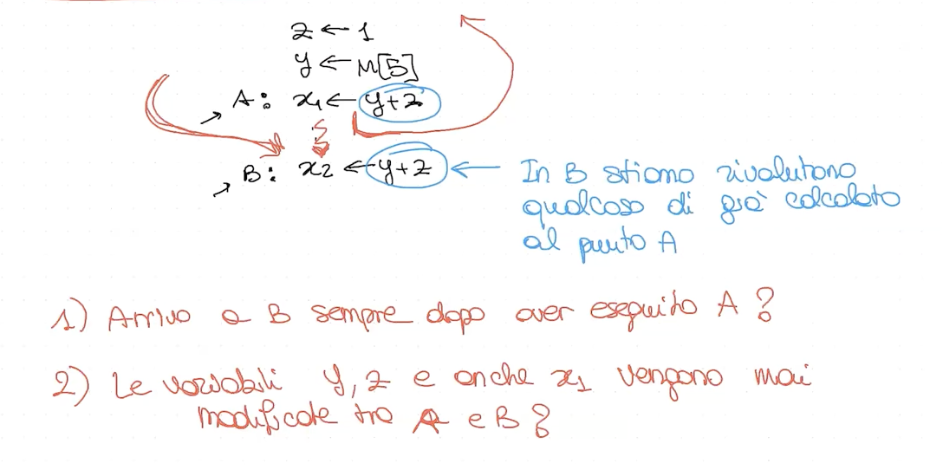 z ← 1
y ← M[5]
A: x1 ← y+z
B: x2 ← y+z
In B stiamo rivalutano
qualcosa di già calcolato
al punto A
1) Arrivo a B sempre dopo aver eseguito A?
2) Le variabili y, z e anche x1 vengono mai
modificate tra A e B?